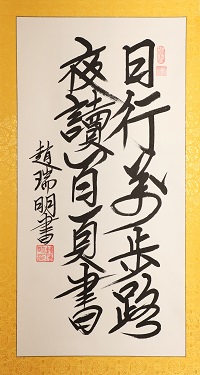 日行萬步路
夜讀百頁書
趙瑞明書